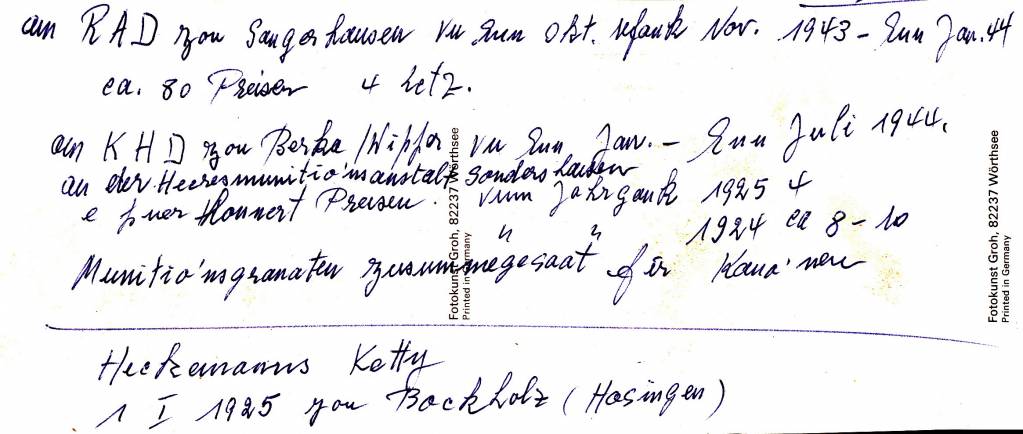 am RAD zou Sangerhausen vu Enn Okt. ufank Nov. 1943 - Enn Jan. 44
ca. 80 Preisen 4 Letz.
am KHD zou Berka/Wipper vu Enn Jan. - Enn Juli 1944.
an der Heeresmunitiónsanstalt Sondershausen
e puer Honnert Preisen. vum Johrgank 1925 4
" " 1924 ca 8-10
Munitiónsgranaten zusummegesaat fir Kanónen
Heckemanns Ketty
1 I 1925 zou Bockholz (Hosingen)
Fotokunst Groh, 82237 Wörthsee
Printed in Germany
Fotokunst Groh, 82237 Wörthsee
Printed in Germany